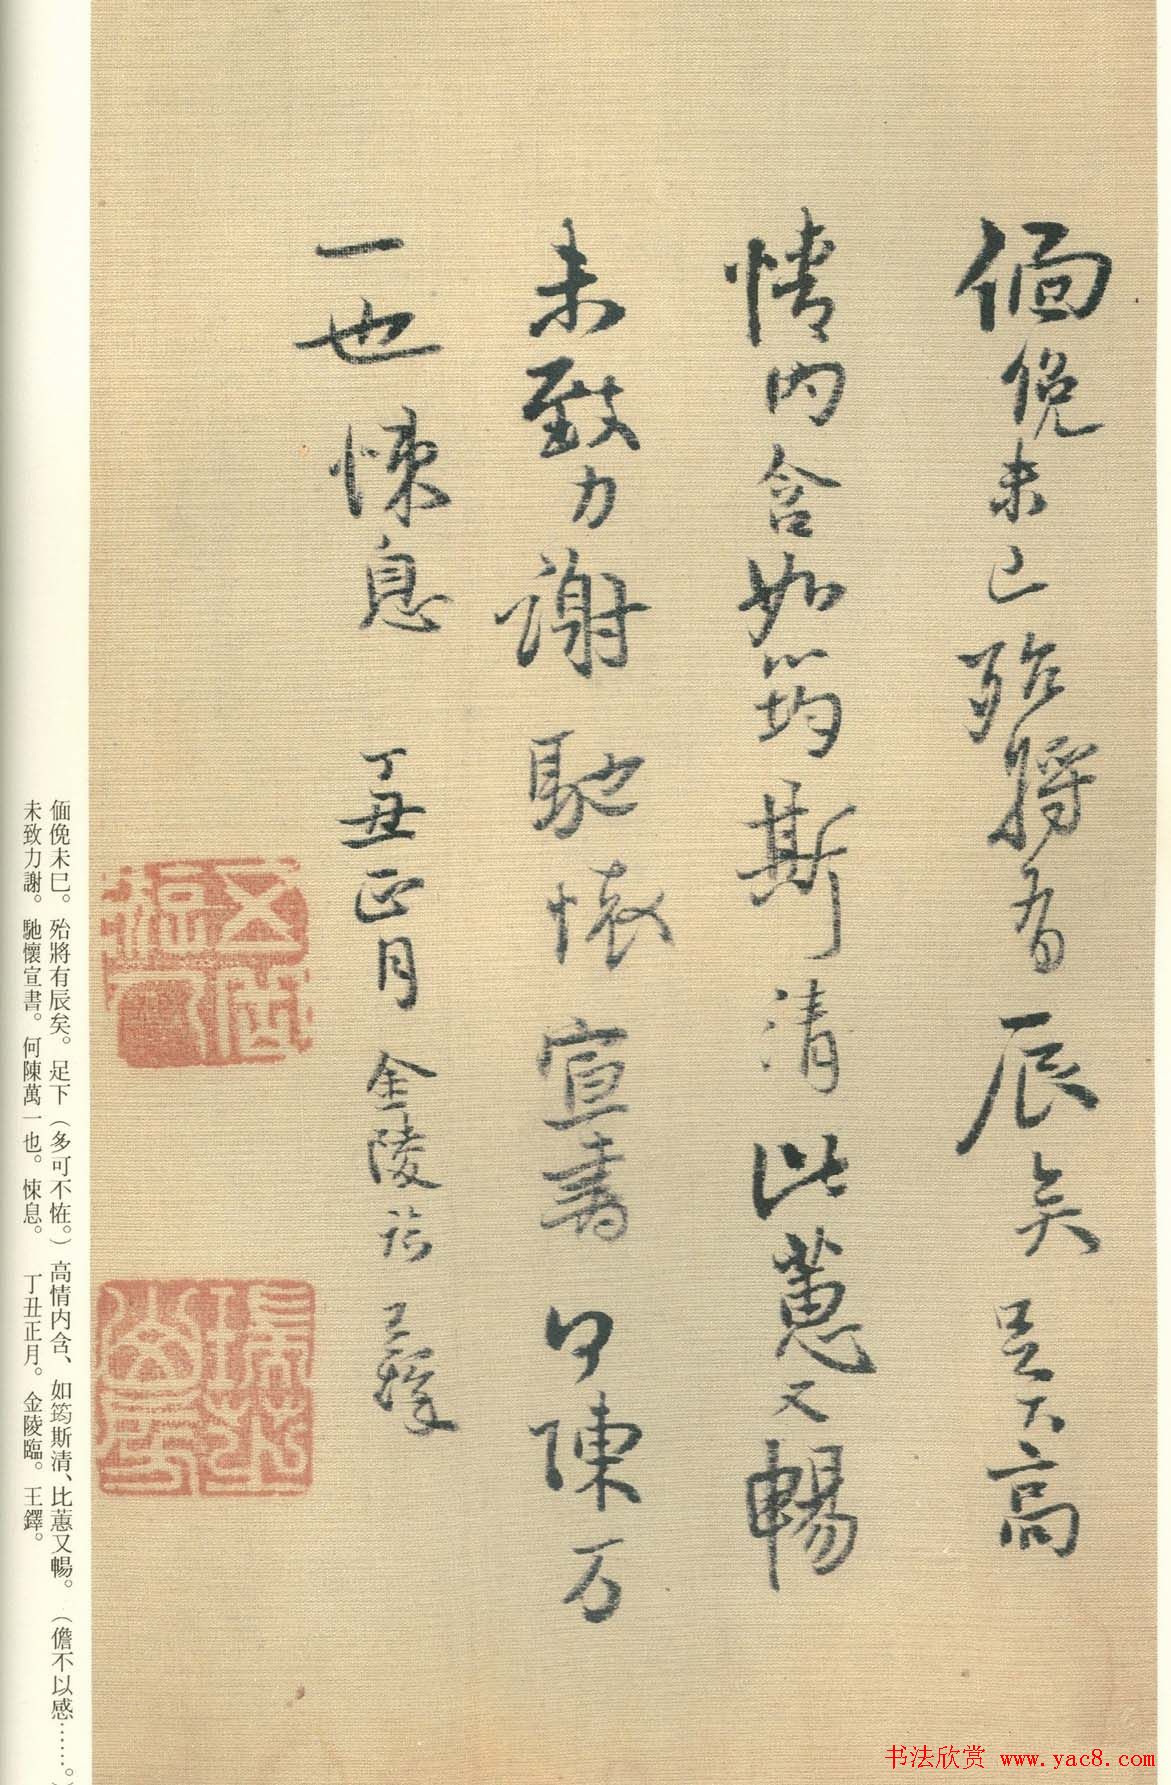 偭俛未已殆將有辰矣足下高
情内含如筠斯清比蕙又暢
未致力謝馳懷宣書何陳万
一也悚息 丁丑正月金陵臨王鐸
偭俛未巳。殆將有辰矣。足下(多可不恠。)高情内含、如筠斯清、比蕙又暢。(儋不以感……。)
未致力謝。馳懷宣書。何陳萬一也。悚息。 丁丑正月。金陵臨。王鐸。
书法欣赏 www.yac8.com